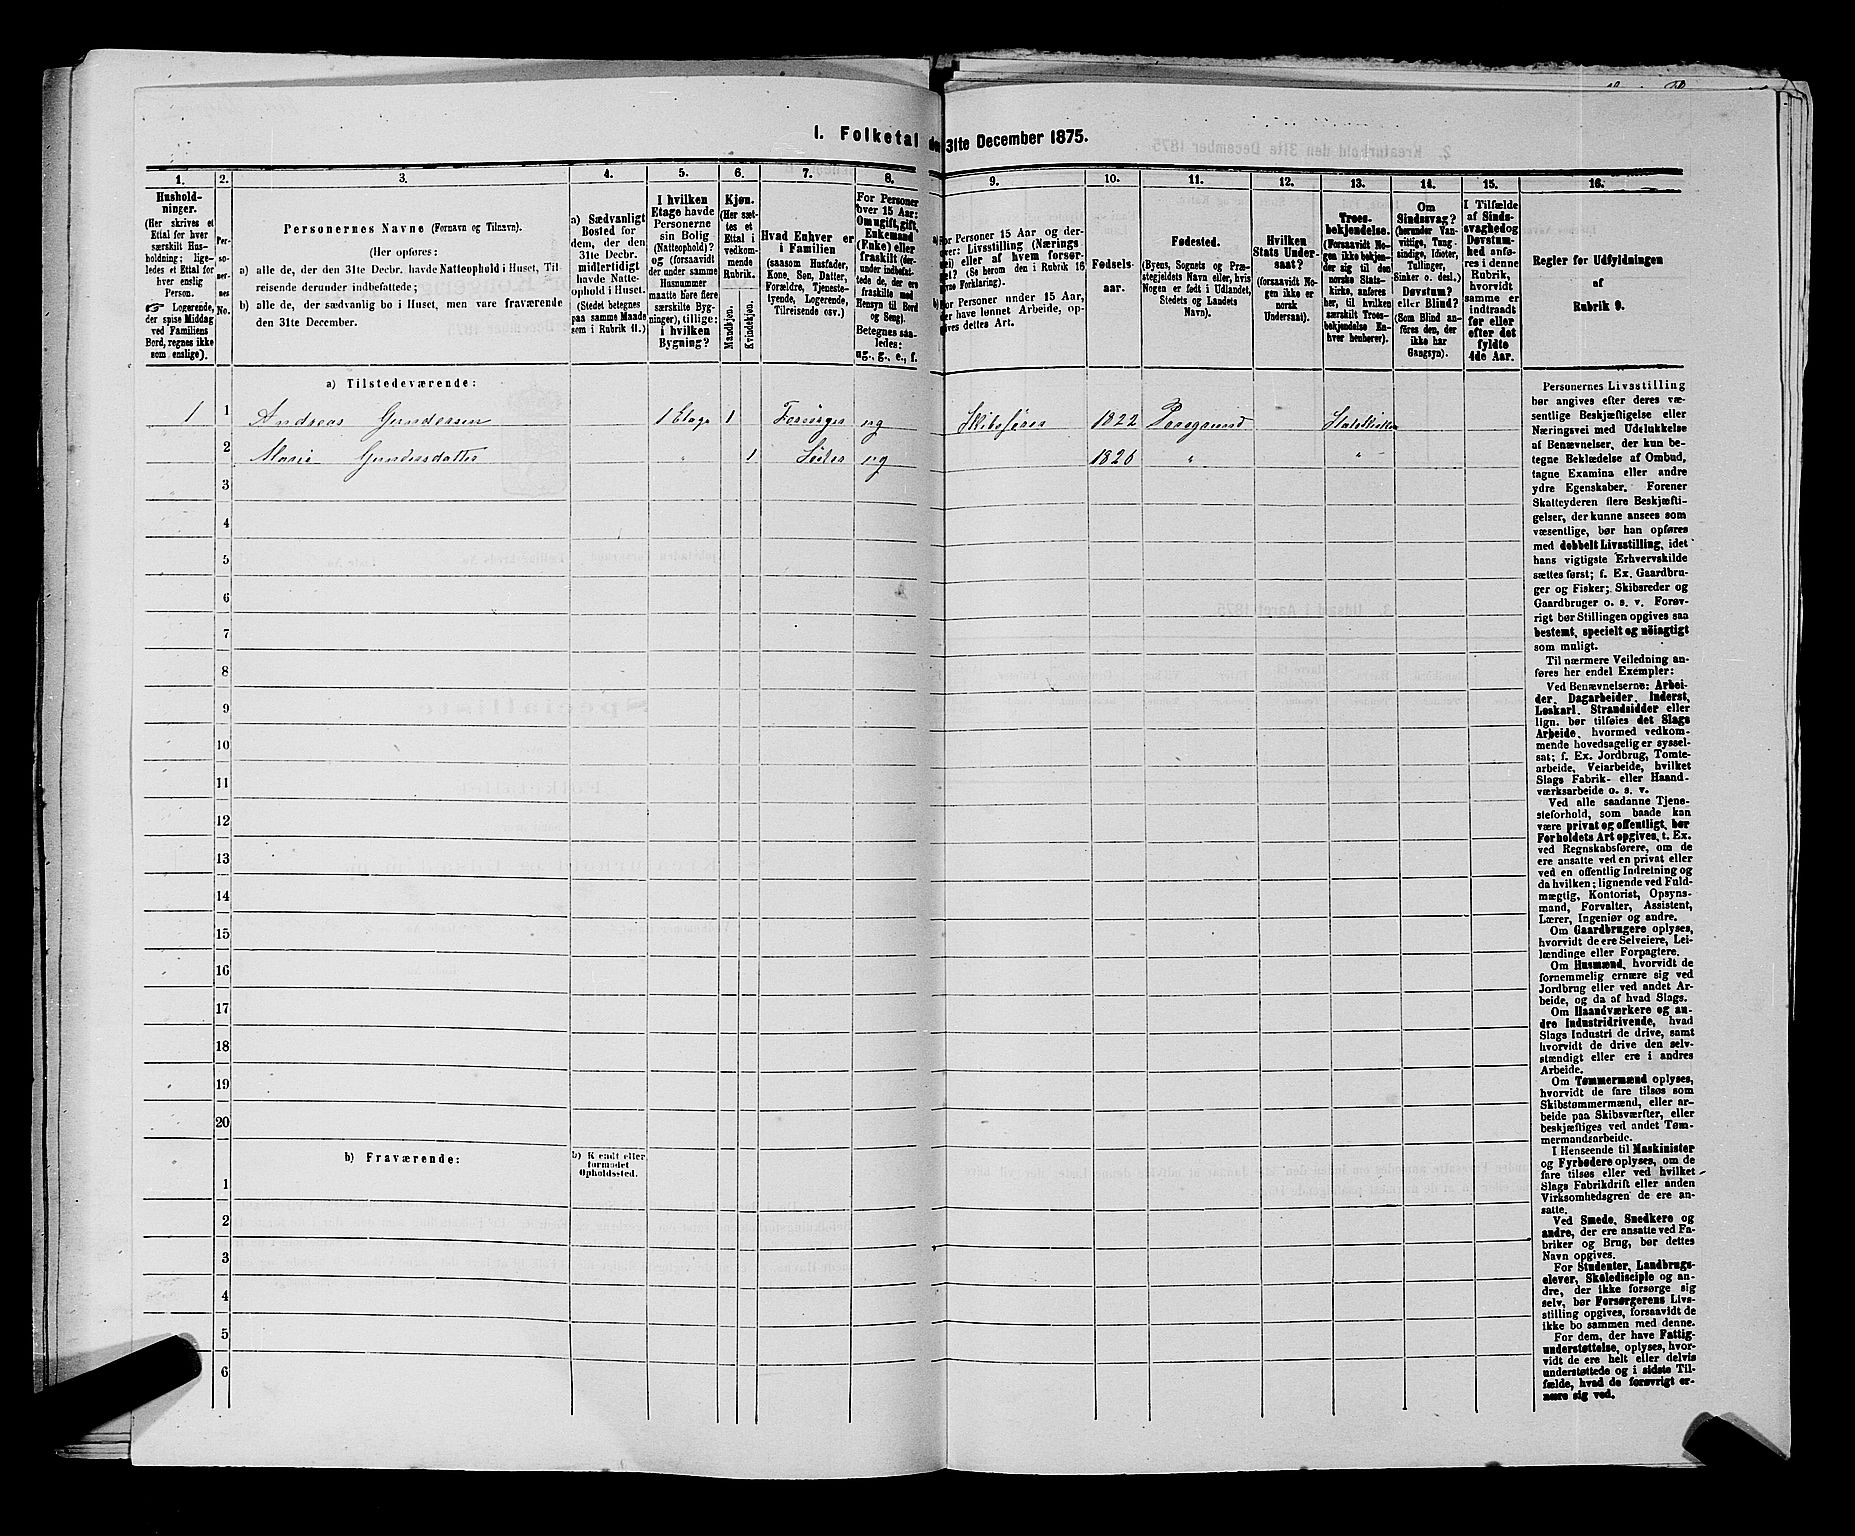 I. Folketal den 31te December 1875.
1. 2. 3. 4. 5. 6. 7. 8. 9. 10. 11. 12. 13. 14. 15. 16.
Husholdninger.
(Her skrives et
Ettal for hver
særskilt Husholdning; ligeledes et Ettal for
hver enslig
Person.
☞ Logerende,
der spise Middag
ved Familiens
Bord, regnes ikke
som enslige).
Personernes No.
Personernes Navne (Fornavn og Tilnavn).
(Her opføres:
a) alle de, der den 31te Decbr. havde Natteophold i Huset, Tilreisende derunder indbefattede;
b) alle de, der sædvanlig bo i Huset, men vare fraværende
den 31te December.
a) Sædvanligt
Bosted for
dem, der den
31te Decbr.
midlertidigt
havde Natteophold i Huset.
(Stedet betegnes
paa samme Maade
som i Rubrik 11.).
I hvilken
Etage havde
Personerne
sin Bolig
(Natteophold)?
og (forsaavidt
der under samme
Husnummer
maatte høre flere
særskilte Bygninger), tillige:
i hvilken
Bygning?
Kjøn.
(Her sættes et
Ettal i
vedkommende
Rubrik.
Mandkjøn.
Kvindekjøn.
Hvad Enhver er
i Familien
(saasom Husfader,
Kone, Søn, Datter,
Forældre, Tjenestetyende, Logerende,
Tilreisende osv.)
For Personer
over 15 Aar:
Om ugift, gift,
Enkemand
(Enke) eller
fraskilt (derunder indbefattede de, der ere
fraskilte med
Hensyn til Bord
og Seng).
Betegnes saaledes:
ug., g., e., f.
a) For Personer 15 Aar og derover: Livsstilling (Næringsvei) eller af hvem forsørget? (Se herom den i Rubrik 16
givne Forklaring).
b) For Personer under 15 Aar,
der have lønnet Arbeide, opgives dettes Art.
Fødselsaar.
Fødested.
(Byens, Sognets og Præstegjeldets Navn eller, hvis
Nogen er født i Udlandet,
Stedets og Landets
Navn).
Hvilken
Stats Undersaat?
(forsaavidt Nogen ikke er
norsk
Undersaat).
Troesbekjendelse.
(Forsaavidt Nogen ikke bekjender sig til den
norske Statskirke, anføres
her, til hvilken
særskilt Troesbekjendelse Enhver henhører).
Om
Sindssvag?
(herunder Vanvittige, Tungsindige, Idioter,
Tullinger,
Sinker o. desl.)
Døvstum?
eller Blind?
(Som Blind anføres den, der
ikke har
Gangsyn).
I Tilfælde
af Sindssvaghed og
Døvstumhed anføres i denne
Rubrik,
hvorvidt
samme er
indtraadt
før eller
efter det
fyldte
4de Aar.
Regler for Udfyldningen
af
Rubrik 9.
a) Tilstedeværende:
1 1 Andreas Gundersen 1 Etage 1 Forsørger ug Skibsfører 1822 Porsgrund Statskirken
2 Maria Gundersdatter " 1 Søster ug 1826 " "
3
4
5
6
7
8
9
10
11
12
13
14
15
16
17
18
19
20
b) Fraværende:
b) Kjendt eller
formodet
Opholdssted.
1
2
3
4
5
6
Personernes Livsstilling
bør angives efter deres væsentlige Beskjæftigelse eller
Næringsvei med Udelukkelse
af Benævnelser, der kun betegne Beklædelse af Ombud,
tagne Examina eller andre
ydre Egenskaber. Forener
Skatteyderen flere Beskjæftigelser, der kunne ansees som
væsentlige, bør han opføres
med dobbelt Livsstilling, idet
hans vigtigste Erhvervskilde
sættes først; f. Ex. Gaardbruger og Fisker; Skibsreder og
Gaardbruger o. s. v. Forøvrigt bør Stillingen opgives saa
bestemt, specielt og nøiagtigt
som muligt.
Til nærmere Veiledning anføres her endel Exempler:
Ved Benævnelserne: Arbeider, Dagarbeider, Inderst,
Løskarl, Strandsidder eller
lign. bør tilføies det Slags
Arbeide, hvormed vedkommende hovedsagelig er sysselsat; f. Ex. Jordbrug, Tomtearbeide, Veiarbeide, hvilket
Slags Fabrik- eller Haandværksarbeide o. s. v.
Ved alle saadanne Tjenesteforhold, som baade kan
være privat og offentligt, bør
Forholdets Art opgives, t. Ex.
ved Regnskabsførere, om de
ere ansatte ved en privat eller
ved en offentlig Indretning og
da hvilken; lignende ved Fuldmægtig, Kontorist, Opsynsmand, Forvalter, Assistent,
Lærer, Ingeniør og andre.
Om Gaardbrugere oplyses,
hvorvidt de ere Selveiere, Leilændinge eller Forpagtere.
Om Husmænd, hvorvidt de
fornemmelig ernære sig ved
Jordbrug eller ved andet Arbeide, og da af hvad Slags.
Om Haandværkere og andre Industridrivende, hvad
Slags Industri de drive, samt
hvorvidt de drive den selvstændigt eller ere i andres
Arbeide.
Om Tømmermænd oplyses,
hvorvidt de fare tilsøs som
Skibstømmermænd, eller arbeide paa Skibsværfter, eller
beskjæftiges ved andet Tømmermandsarbeide.
I Henseende til Maskinister
og Fyrbødere oplyses, om de
fare tilsøs eller ved hvilket
Slags Fabrikdrift eller anden
Virksomhedsgren de ere ansatte.
Ved Smede, Snedkere og
andre, der ere ansatte ved Fabriker og Brug, bør dettes
Navn opgives.
For Studenter, Landbrugselever, Skoledisciple og andre, der ikke forsørge sig
selv, bør Forsørgerens Livsstilling opgives, forsaavidt de
ikke bo sammen med denne.
For dem, der have Fattigunderstøttelse, oplyses, hvorvidt de ere helt eller delvis
understøttede og i sidste Tilfælde, hvad de forøvrigt ernære sig ved.